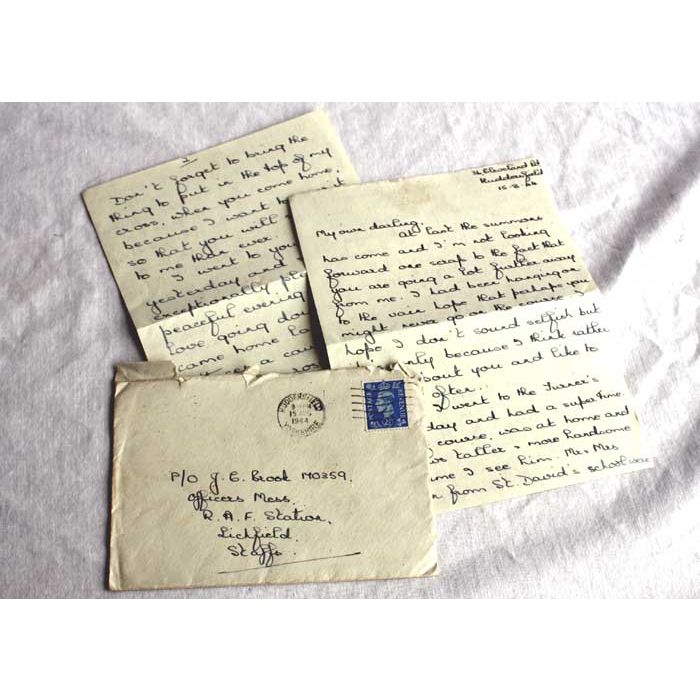 Don't forget to bring the
thing to put in the top of my
cross, when you come home,
because I want to
so that you will
to me than ever.
I went to you
yesterday and
exceptionally
peaceful evening
love going
came home
36 Cleveland Rd
Huddersfield
15-8-44
My own darling,
at last the summons
has come and I'm not looking
forward one scrap to the fact that
you are going a lot further away
from me. I had been hanging on
to the vain hope that perhaps you
might never go on the course, I
hope I don't sound selfish but
only because I think rather
about you and like to
after.
went to the
day and had a super time.
course, was at home and
taller & more handsome
I see him. Mr. Mrs
from St. David's school were
HUDDERSFIELD
15 AUG
1944
YORKSHIRE
P/O J. E. Brook M0359.
Officers Mess.
R.A.F. Station,
Lichfield.
Staffs.